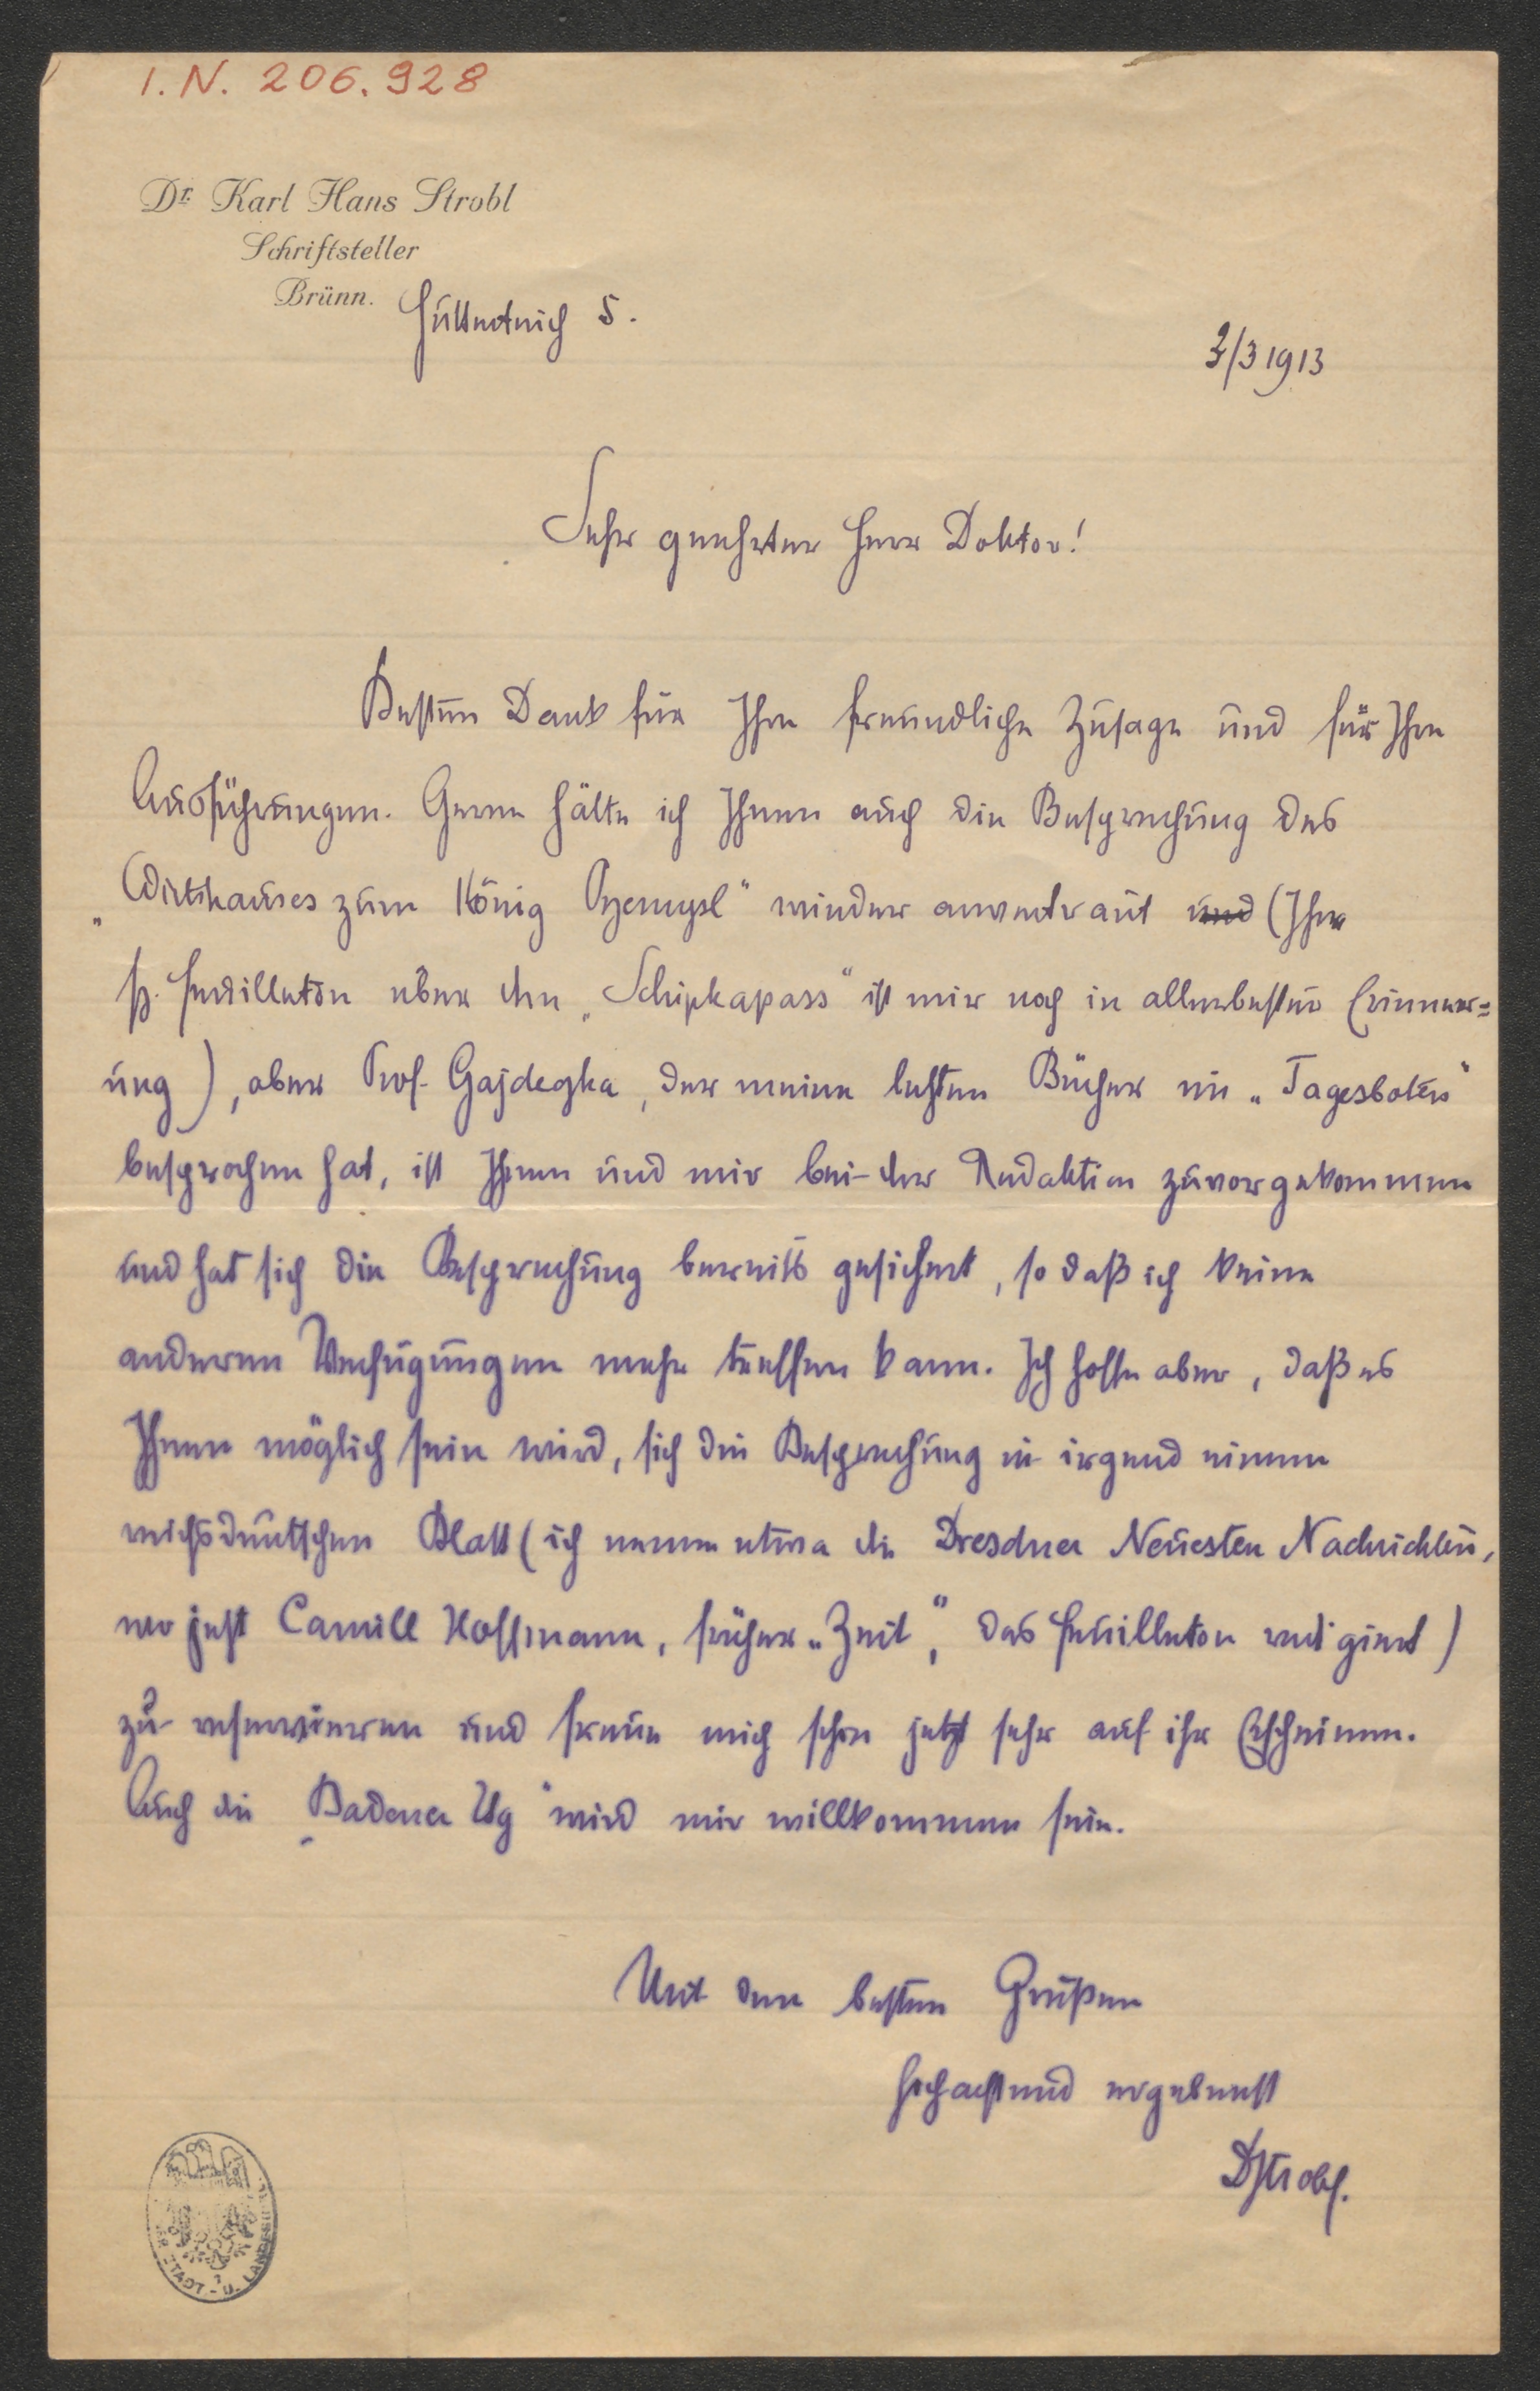 I. N. 206.928
Dr. Karl Hans Strobl
Schriftsteller
Brünn. Hüttelteich 5.
3/3 1913
Sehr geehrter Herr Doktor!
Besten Dank für Ihre freundliche Zusage und für Ihre
Ausführungen. Gerne hätte ich Ihnen auch die Besprechung des
„Wirtshauses zum König Przemysl“ wieder anvertraut und (Ihr
Feuilleton über den „Schipkapass“ ist mir noch in allerbester Erinner=
ung), aber Prof. Gajdeczka, der meine letzten Bücher im „Tagesboten“
besprochen hat, ist Ihnen und mir bei der Redaktion zuvorgekommen
und hat sich die Besprechung bereits gesichert, so daß ich keine
anderen Verfügungen mehr treffen kann. Ich hoffe aber, daß es
Ihnen möglich sein wird, sich die Besprechung in irgend einem
reichsdeutschen Blatt (ich nenne etwa die Dresdner Neuesten Nachrichten,
wo jetzt Camill Hoffmann, früher „Zeit“, das Feuilleton redigiert)
zu reservieren und freue mich schon jetzt sehr auf ihr Erscheinen.
Auch die „Badener Ztg“ wird mir willkommen sein.
Mit den besten Grüßen
hochachtend ergebenst
DStrobl.
STADT - U. LANDESBI